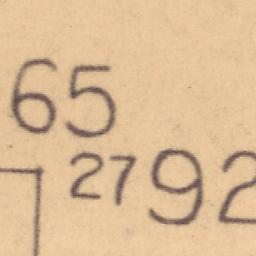 65
27 92